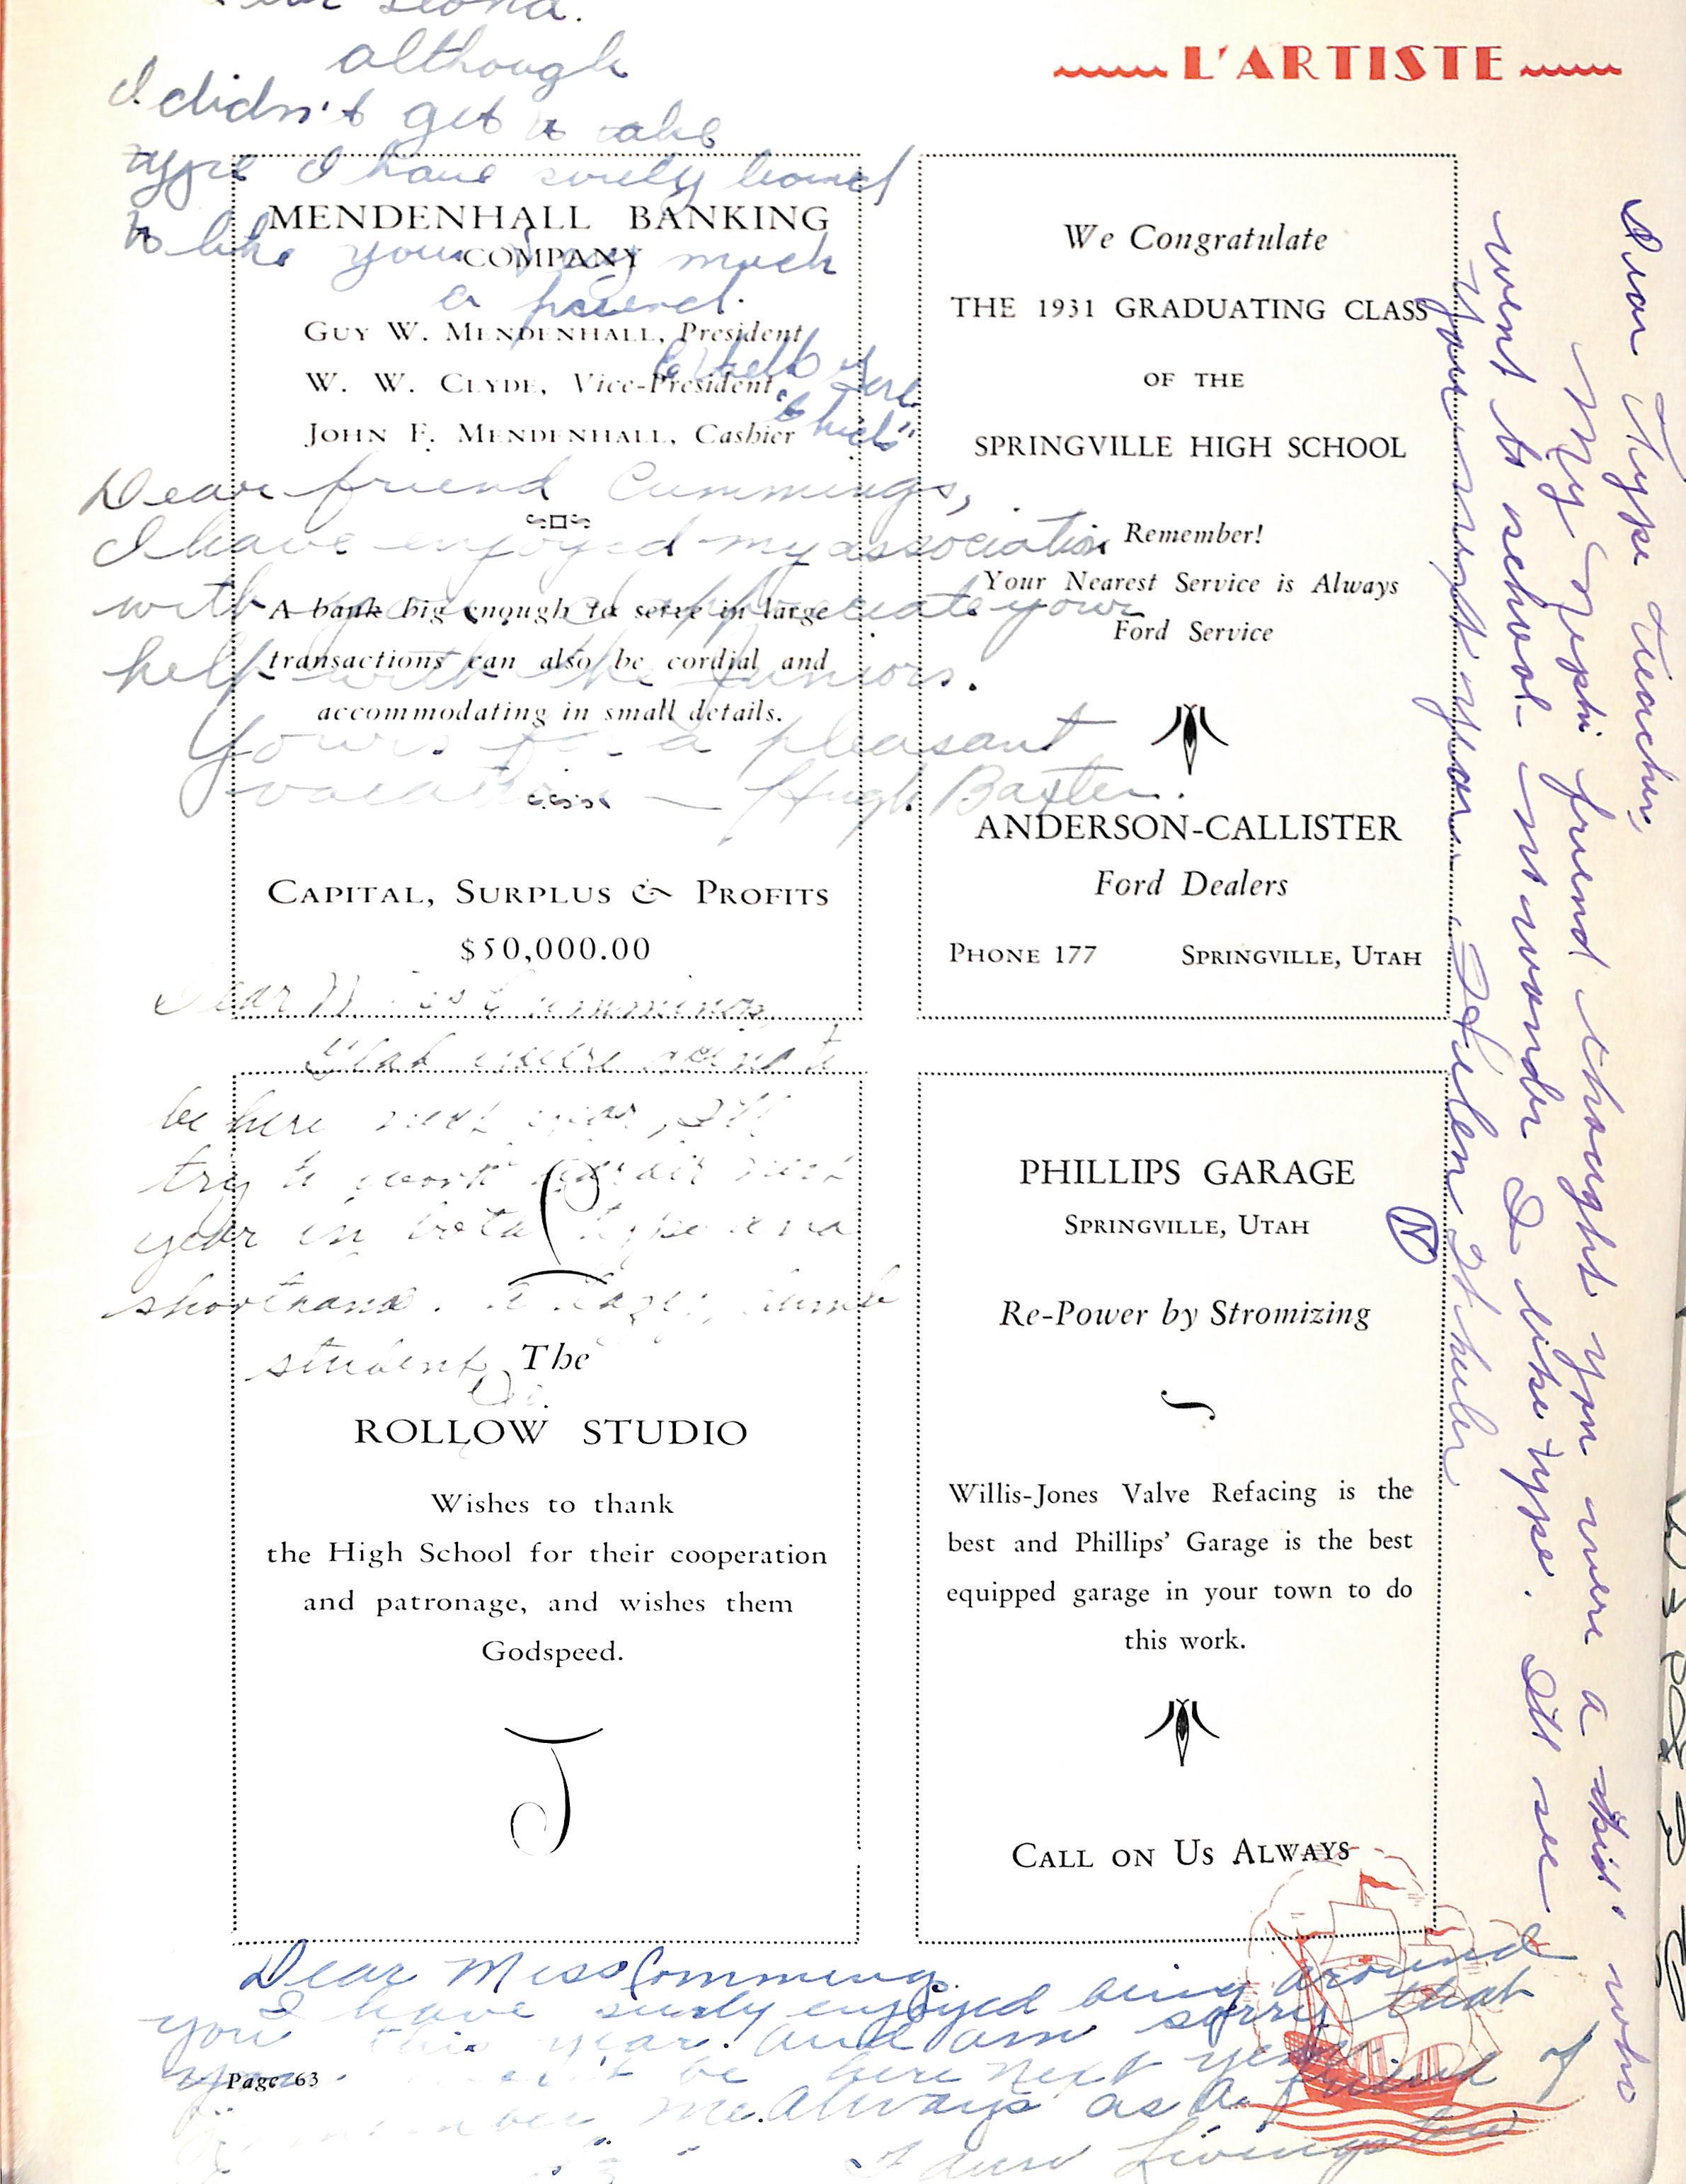 L'ARTISTE
although
I didn't get to take
type I have surely learned
to like you very much
a friend.
"Chick"
MENDENHALL BANKING
COMPANY
GUY W. MENDENHALL, President
W. W. CLYDE, Vice-President
JOHN F. MENDENHALL, Cashier
Dear friend Cummings,
I have enjoyed my association
with you and appreciate your
help with the Juniors.
Yours for a pleasant
vacation — Hugh Baxter.
A bank big enough to serve in large
transactions can also be cordial and
accommodating in small details.
CAPITAL, SURPLUS & PROFITS
$50,000.00
We Congratulate
THE 1931 GRADUATING CLASS
OF THE
SPRINGVILLE HIGH SCHOOL
Remember!
Your Nearest Service is Always
Ford Service
ANDERSON-CALLISTER
Ford Dealers
PHONE 177 SPRINGVILLE, UTAH
Dear Miss Cummings,
be here next year, I'll
try to work harder next
year in both type and
shorthand. A lazy, dumb
student
The
ROLLOW STUDIO
Wishes to thank
the High School for their cooperation
and patronage, and wishes them
Godspeed.
PHILLIPS GARAGE
SPRINGVILLE, UTAH
Re-Power by Stromizing
Willis-Jones Valve Refacing is the
best and Phillips' Garage is the best
equipped garage in your town to do
this work.
CALL ON US ALWAYS
Dear Type Teacher,
My Nephi friend thought you were a who
went to school - no wonder I like type. I'll see
you next year.
N
Dear Miss Comming
I have surely enjoyed being around
you this year and am sorry that
you won't be here next year.
Remember me always as a friend of
Livingston
Page 63